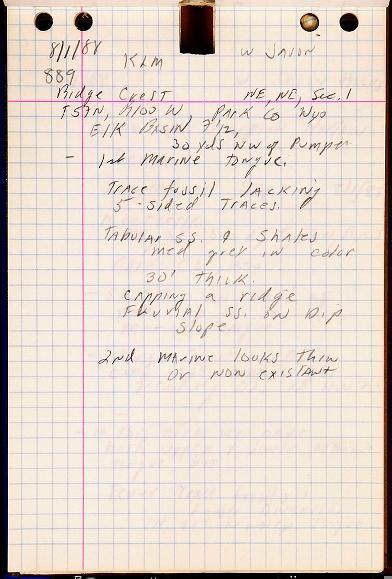 8/1/88 KLM W JASON
889
Ridge Crest NE, NE, Sec. 1
T57N, R100W, Park Co Wyo
Elk Basin 7 1/2,
30 yds NW of Pumper
- 1st Marine Tongue.
Trace fossil lacking
5-sided Traces.
Tabular s.s. & Shales
med grey in color
30' thick.
capping a ridge
Fluvial ss. on Dip
slope
2nd Marine looks thin
or non existant